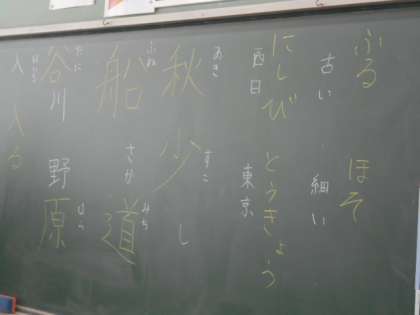 ふる ほそ
古い 細い
にしび とうきょう
西日 東京
あき すこ
秋 少し
ふね みち
船 さか道
たに はら
谷川 野原
入 入る